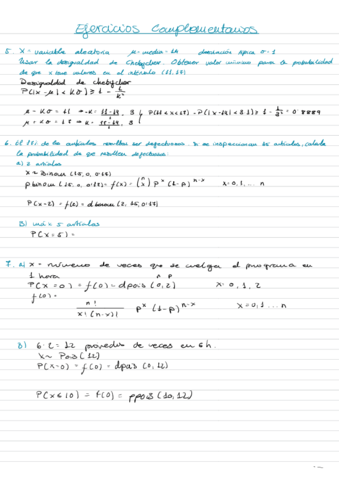 Ejercicios Complementarios
5. X = variable aleatoria μ = media = 14 desviación típica σ = 1
Usar la desigualdad de Chebychev. Obtener valor mínimo para la probabilidad
de que X tome valores en el intervalo (11,17)
Desigualdad de chebychev
P(|X - μ| < Kσ) ≥ 1 - 1/K²
6. El 18% de los artículos resultan ser defectuosos. Si se inspeccionan 15 artículos, calcula
la probabilidad de que resulten defectuosos:
a) 2 artículos
P(X=2) = f(2) = dbinom(2, 15, 0.18)
B) más 5 artículos
P(X > 5) =
7. a) X = número de veces que se cuelga el programa en
1 hora
P(X = 0) = f(0) = dpois(0, 2) X = 0, 1, 2
f(0) =
n! / x!(n-x)! p^x (1-p)^n-x x = 0, 1 ... n
B) 6·2 = 12 promedio de veces en 6h.
X ~ Pois(12)
P(X=0) = f(0) = dpois(0, 12)
P(X ≤ 10) = f(0) = ppois(10, 12)